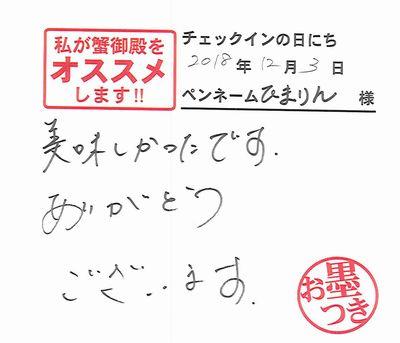 私が蟹御殿を
オススメ
します!!
チェックインの日にち
2018年12月3日
ペンネームひまりん 様
美味しかったです.
ありがとう
ございます.
お墨
つき